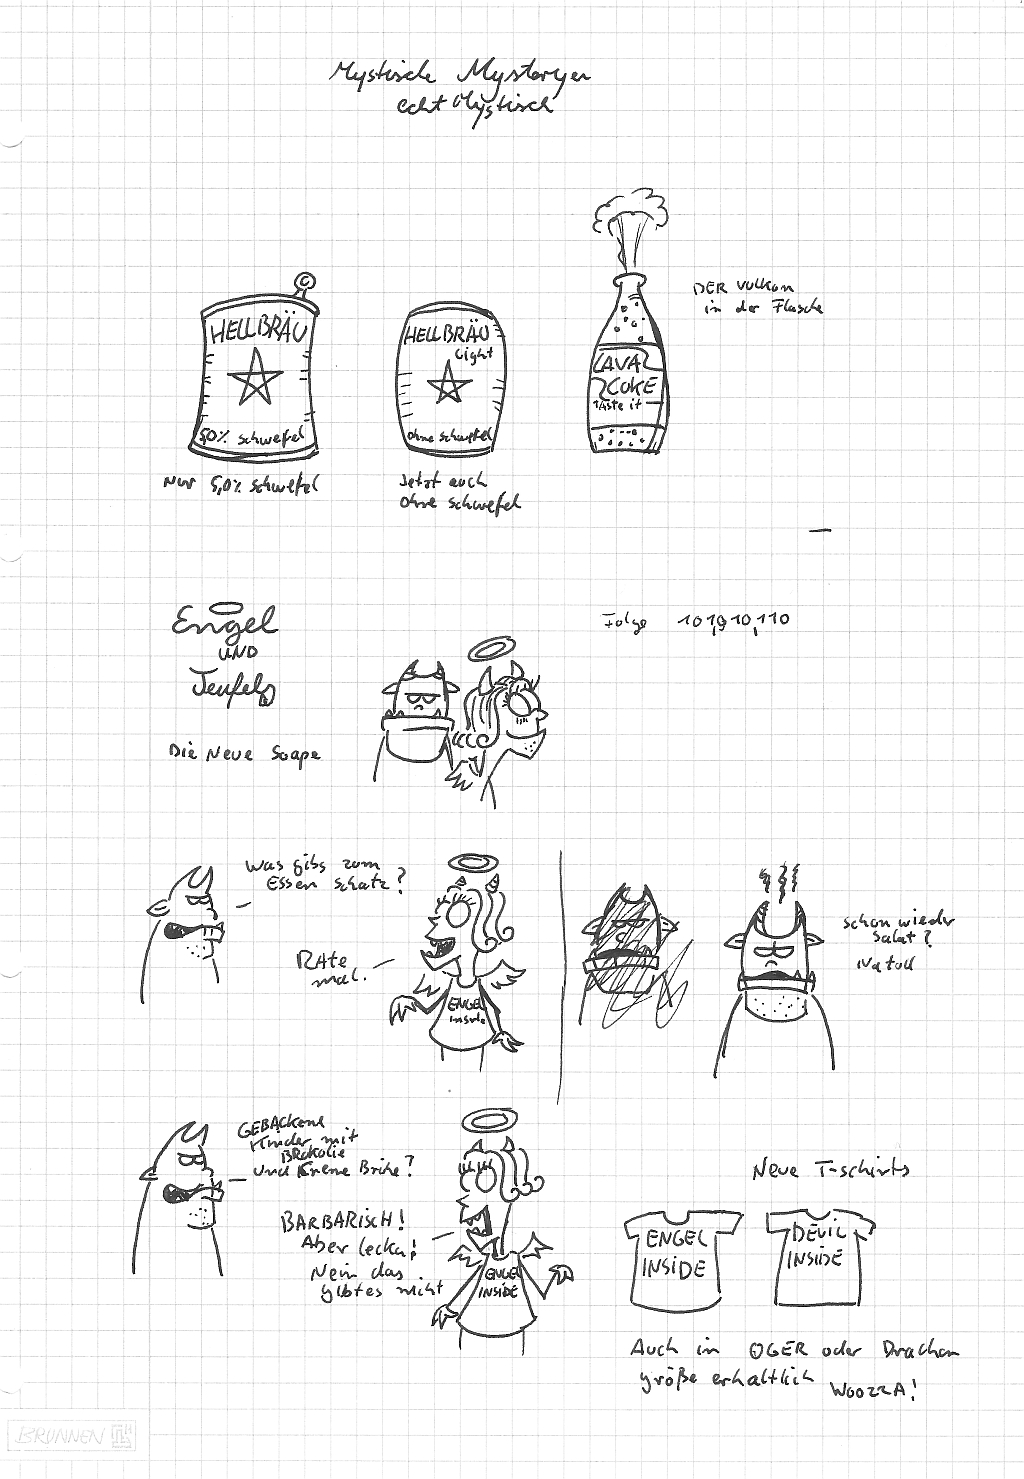 Mystische Mysteryen
echt Mystisch
HELLBRÄU
50% schwefel
Nur 5,0% schwefel
HELLBRÄU
Light
ohne schwefel
Jetzt auch
ohne schwefel
LAVA
COKE
taste it
DER Vulkan
in der Flasche
Engel
UND
Teufel
Die Neue Soape
Folge 101,910,110
Was gibs zum
Essen schatz?
RAte
mal.
ENGEL
inside
schon wieder
Salat?
Na toll
GEBACKene
Kinder mit
BRokolie
und Kreme Brihe?
BARBARiscH!
Aber lecka!
Nein das
gibtes nicht
ENGEL
INSIDE
Neue T-schirts
ENGEL
INSIDE
DEVIL
INSIDE
Auch in OGER oder Drachen
größe erhaltlich
WOOZZA!
BRUNNEN